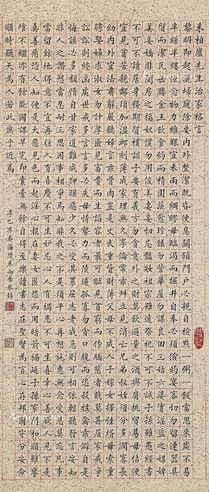 朱柏廬先生治家格言
黎明即起灑掃庭除要內外整潔既昏便息關鎖門戶必親自檢點一粥一飯當思來處不易
半絲半縷恆念物力維艱宜未雨而綢繆毋臨渴而掘井自奉必須儉約宴客切勿留連器具
質而潔瓦缶勝金玉飲食約而精園蔬愈珍饈勿營華屋勿謀良田三姑六婆實淫盜之媒婢
美妾嬌非閨房之福奴僕勿用俊美妻妾切忌豔妝祖宗雖遠祭祀不可不誠子孫雖愚經書
不可不讀居身務期質樸教子要有義方勿貪意外之財莫飲過量之酒與肩挑貿易毋佔便
宜見貧苦親鄰須加溫卹刻薄成家理無久享倫常乖舛立見消亡兄弟叔姪須分多潤寡長
幼內外宜法肅辭嚴聽婦言乖骨肉豈是丈夫重貲財薄父母不成人子嫁女擇佳婿毋索重
聘娶媳求淑女勿計厚奩見富貴而生諂容者最可恥遇貧窮而作驕態者賤莫甚居家戒爭
訟訟則終凶處世戒多言言多必失勿恃勢力而凌逼孤寡毋貪口腹而恣殺牲禽乖僻自是
悔誤必多頹惰自甘家道難成狎暱惡少久必受其累屈志老成急則可相依輕聽發言安知
非人之譖愬當忍耐三思因事相爭焉知非我之不是須平心再想施惠無念受恩莫忘凡事
當留餘地得意不宜再往人有喜慶不可生妒忌心人有禍患不可生喜幸心善欲人見不是
真善惡恐人知便是大惡見色而起淫心報在妻女匿怨而用暗箭禍延子孫家門和順雖饔
飧不繼亦有餘歡國課早完即囊橐無餘自得至樂讀書志在聖賢為官心存君國守分安命
順時聽天為人若此庶乎近焉
辛巳年春